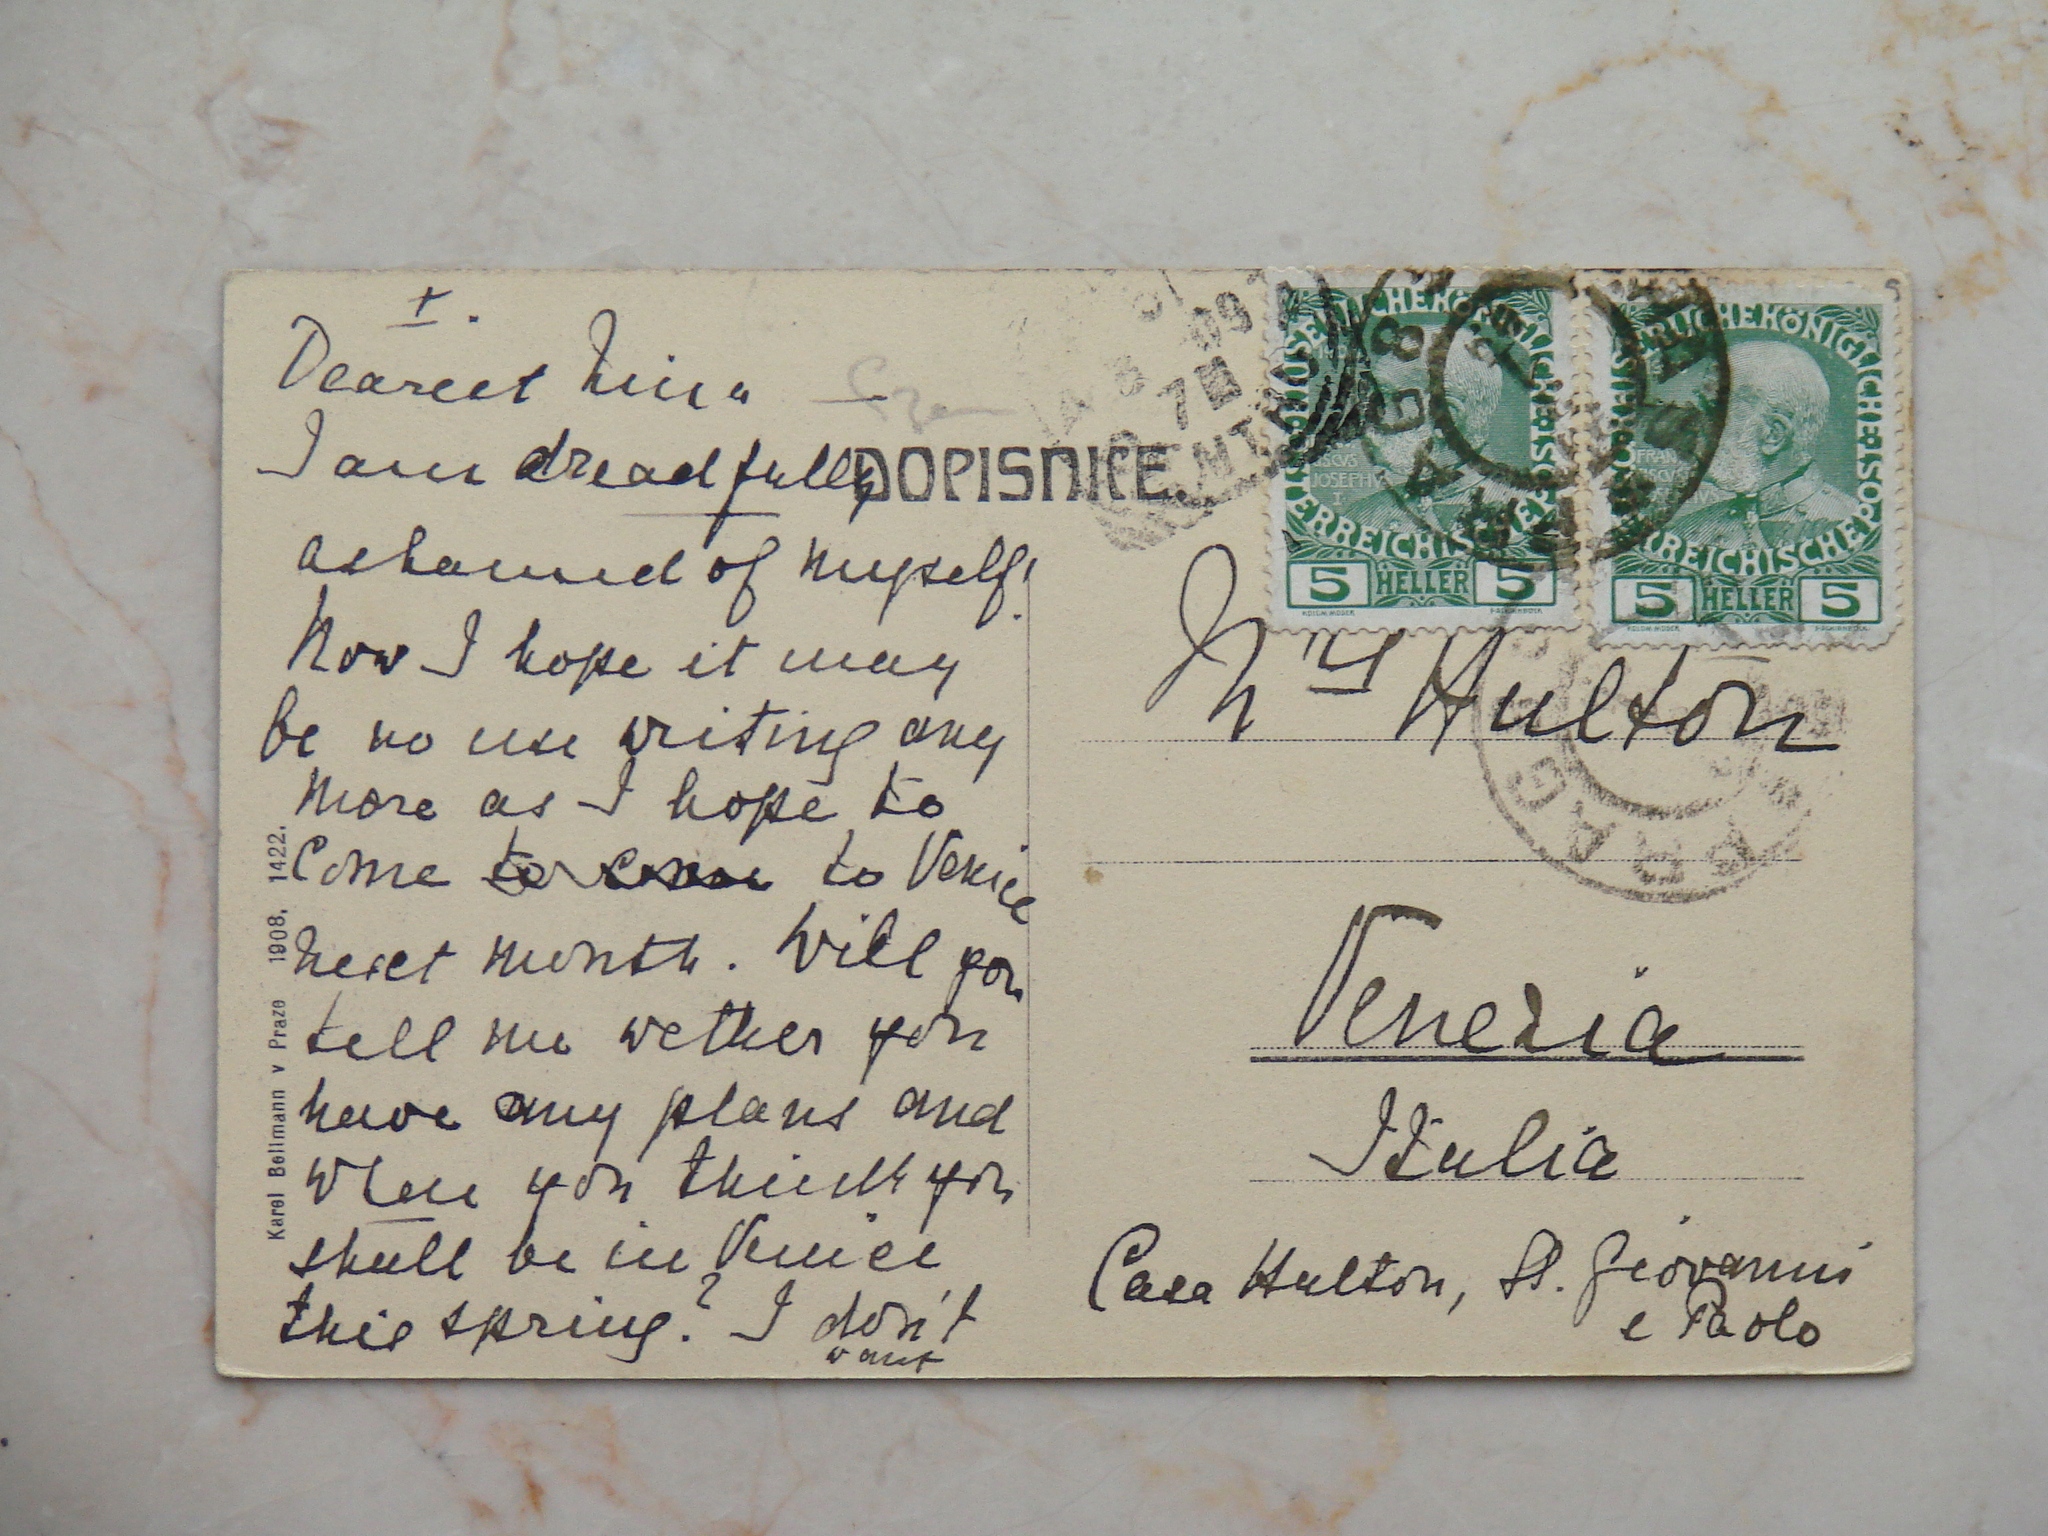 I.
Dearest Nina
I am dreadfully
ashamed of myself!
Now I hope it may
be no use writing any
more as I hope to
come to come to Venice
next month. Will you
tell me wether you
have any plans and
when you think you
shall be in Venice
this spring? I don't
want
Karel Bellmann v Praze 1908. 1422.
DOPISNICE.
09
7
5 HELLER 5
5 HELLER 5
PRAG
Mrs Hulton
Venezia
Italia
Casa Hulton, SS. Giovanni
e Paolo